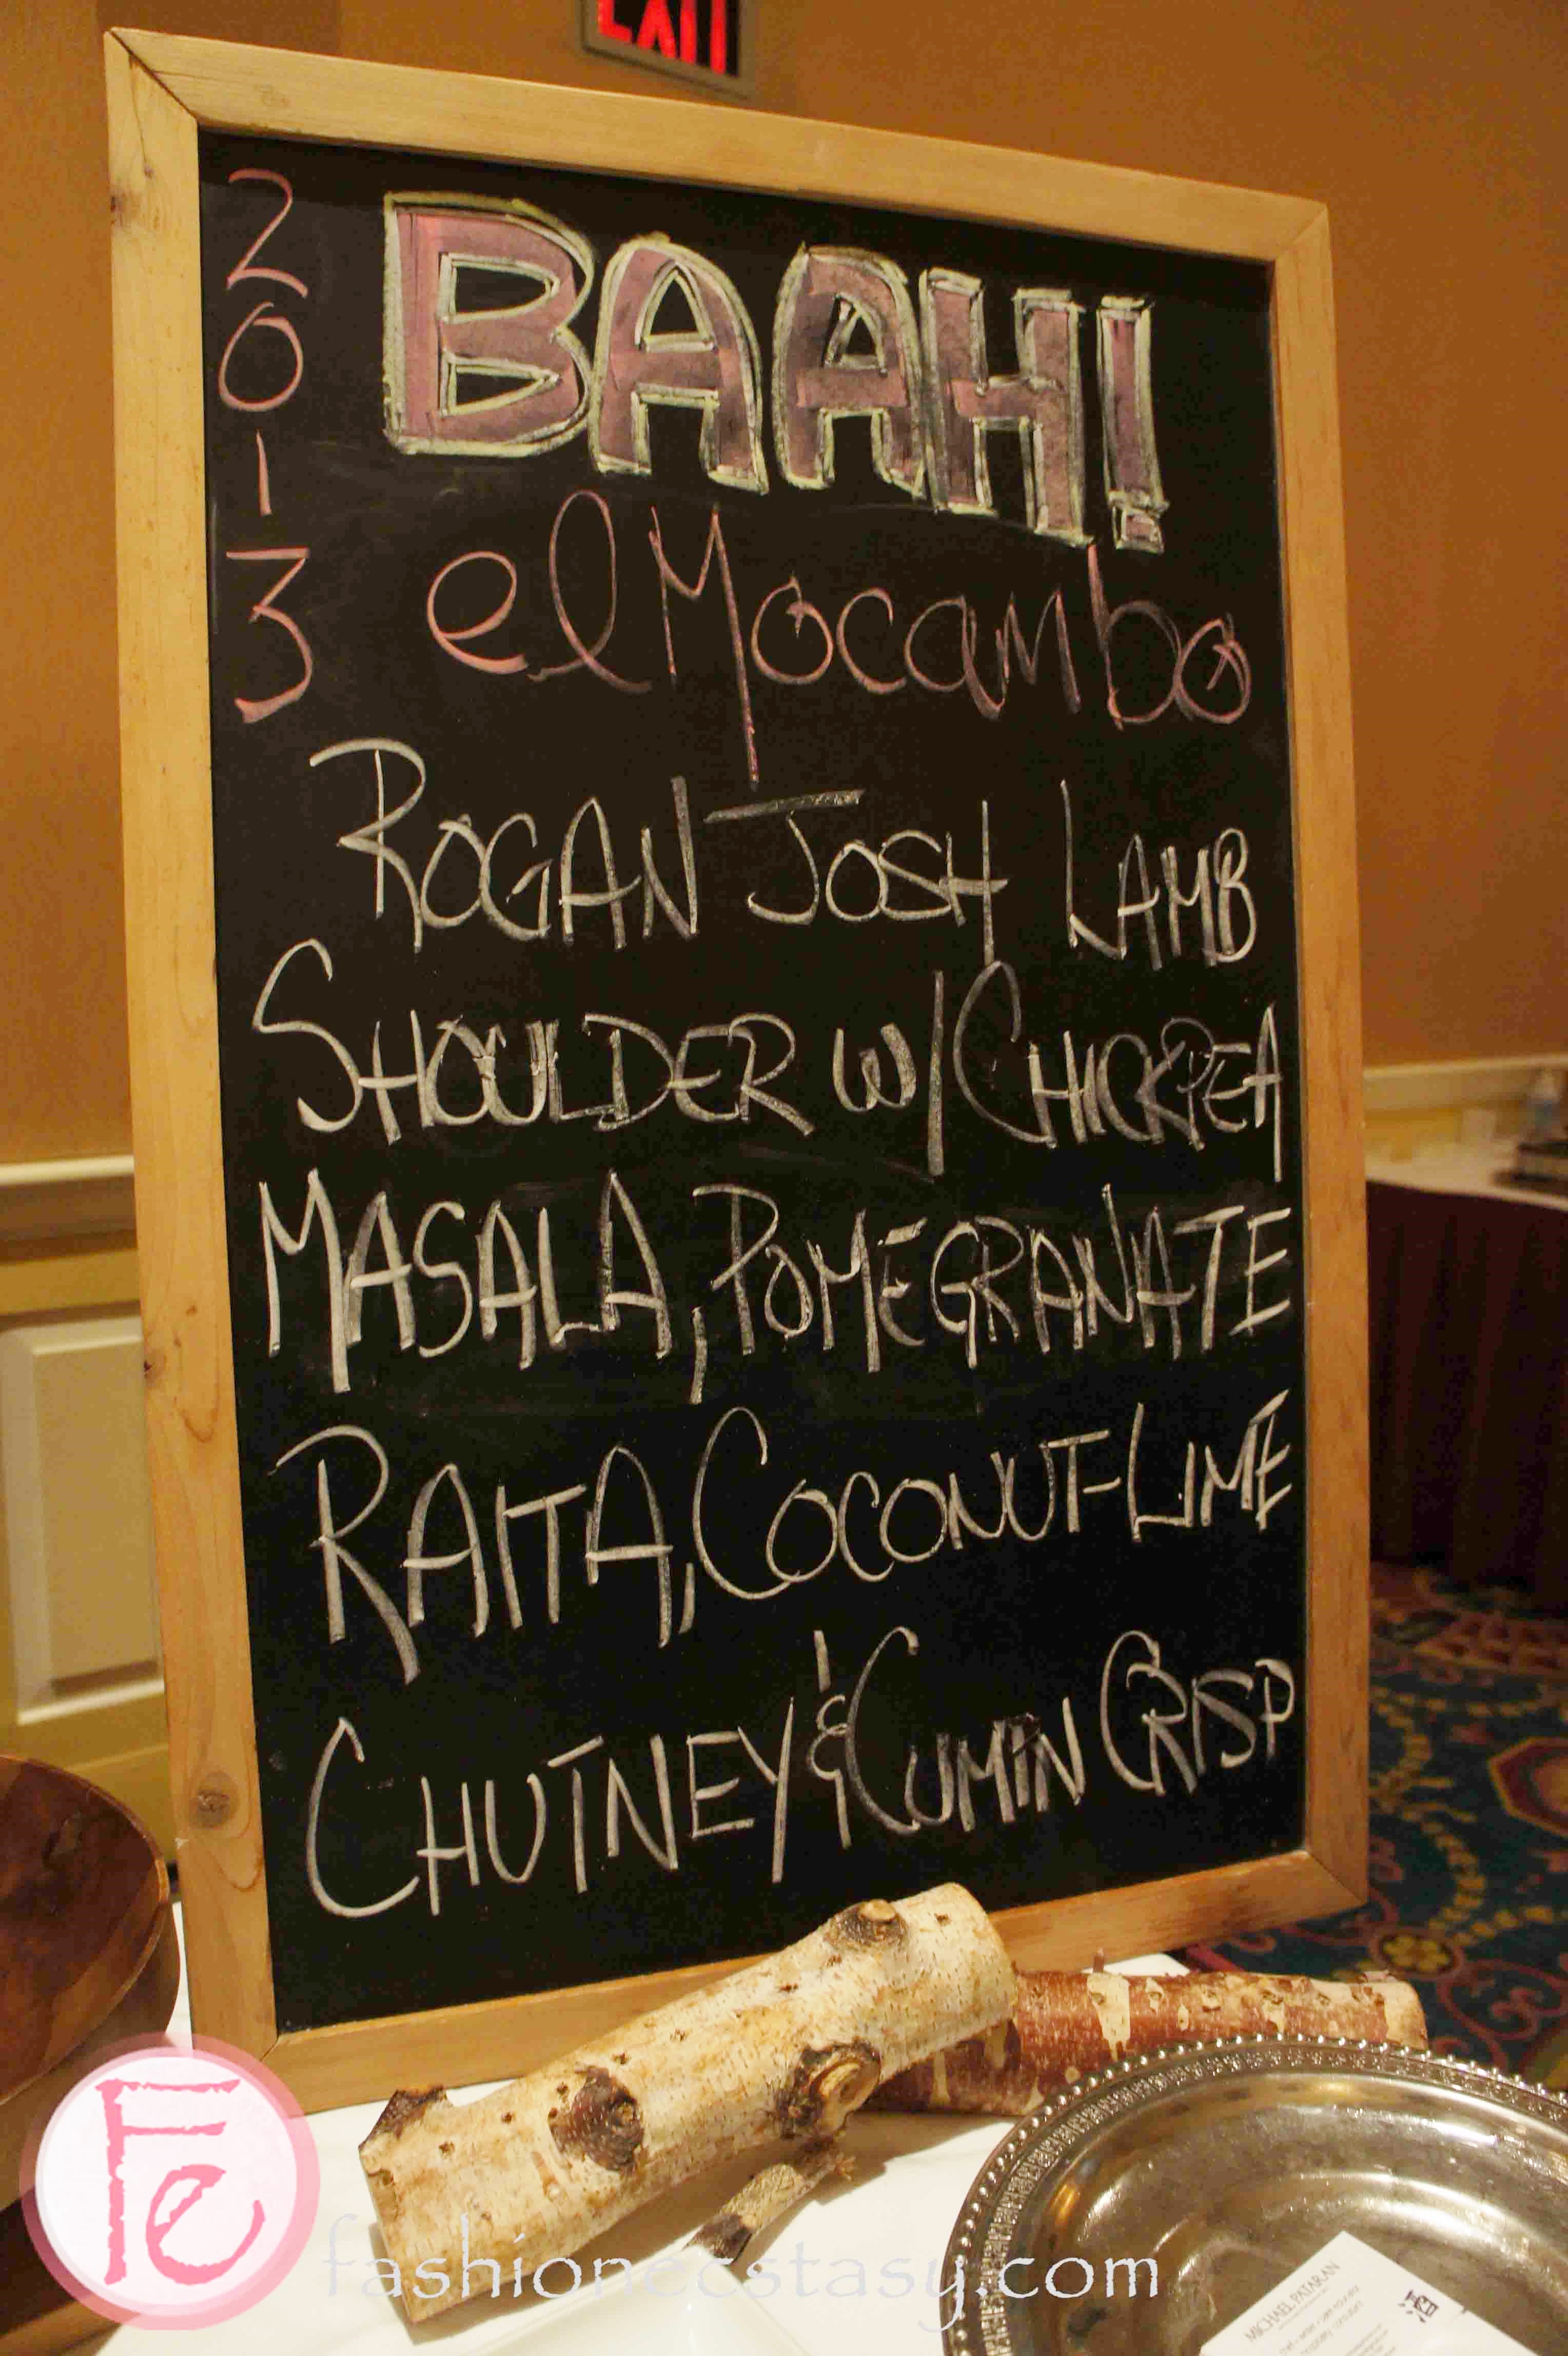 EXIT
2013
BAAH!
el Mocambo
ROGAN JOSH LAMB
SHOULDER W/ CHICKPEA
MASALA, POMEGRANATE
RAITA, COCONUT-LIME
CHUTNEY & CUMIN CRISP
Fe
fashionecstasy.com
MICHAEL PATARAN